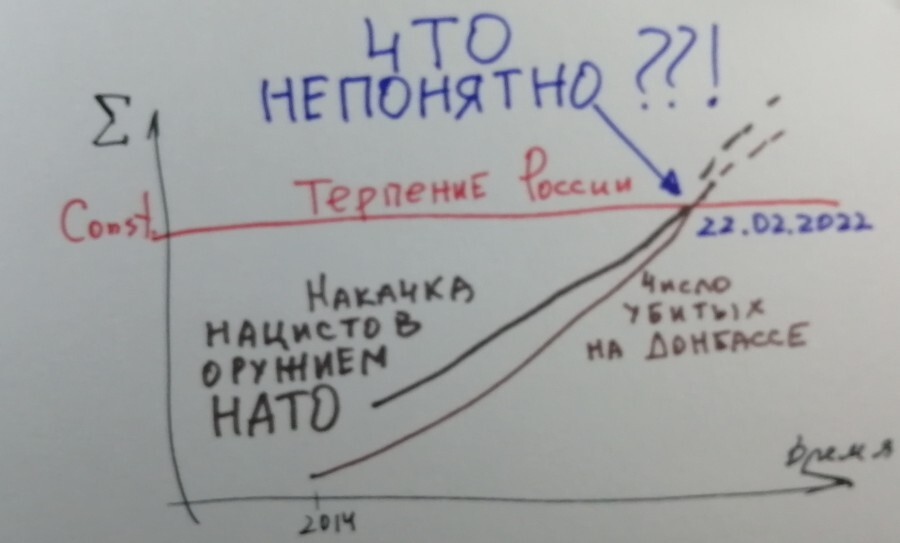 ЧТО
НЕПОНЯТНО ??!
Σ
Терпение России
Const.
22.02.2022
Накачка
нацистов
оружием
НАТО
Число
убитых
на Донбассе
Время
2014